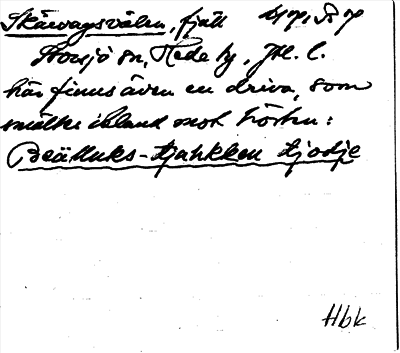 Skärvagsvålen, fjäll
Storsjö sn, Hede tg, Jtl. l.
här finns även en driva, som
smälter ibland mot hösten:
Beälluks-tjahkken tjodje
Hbk